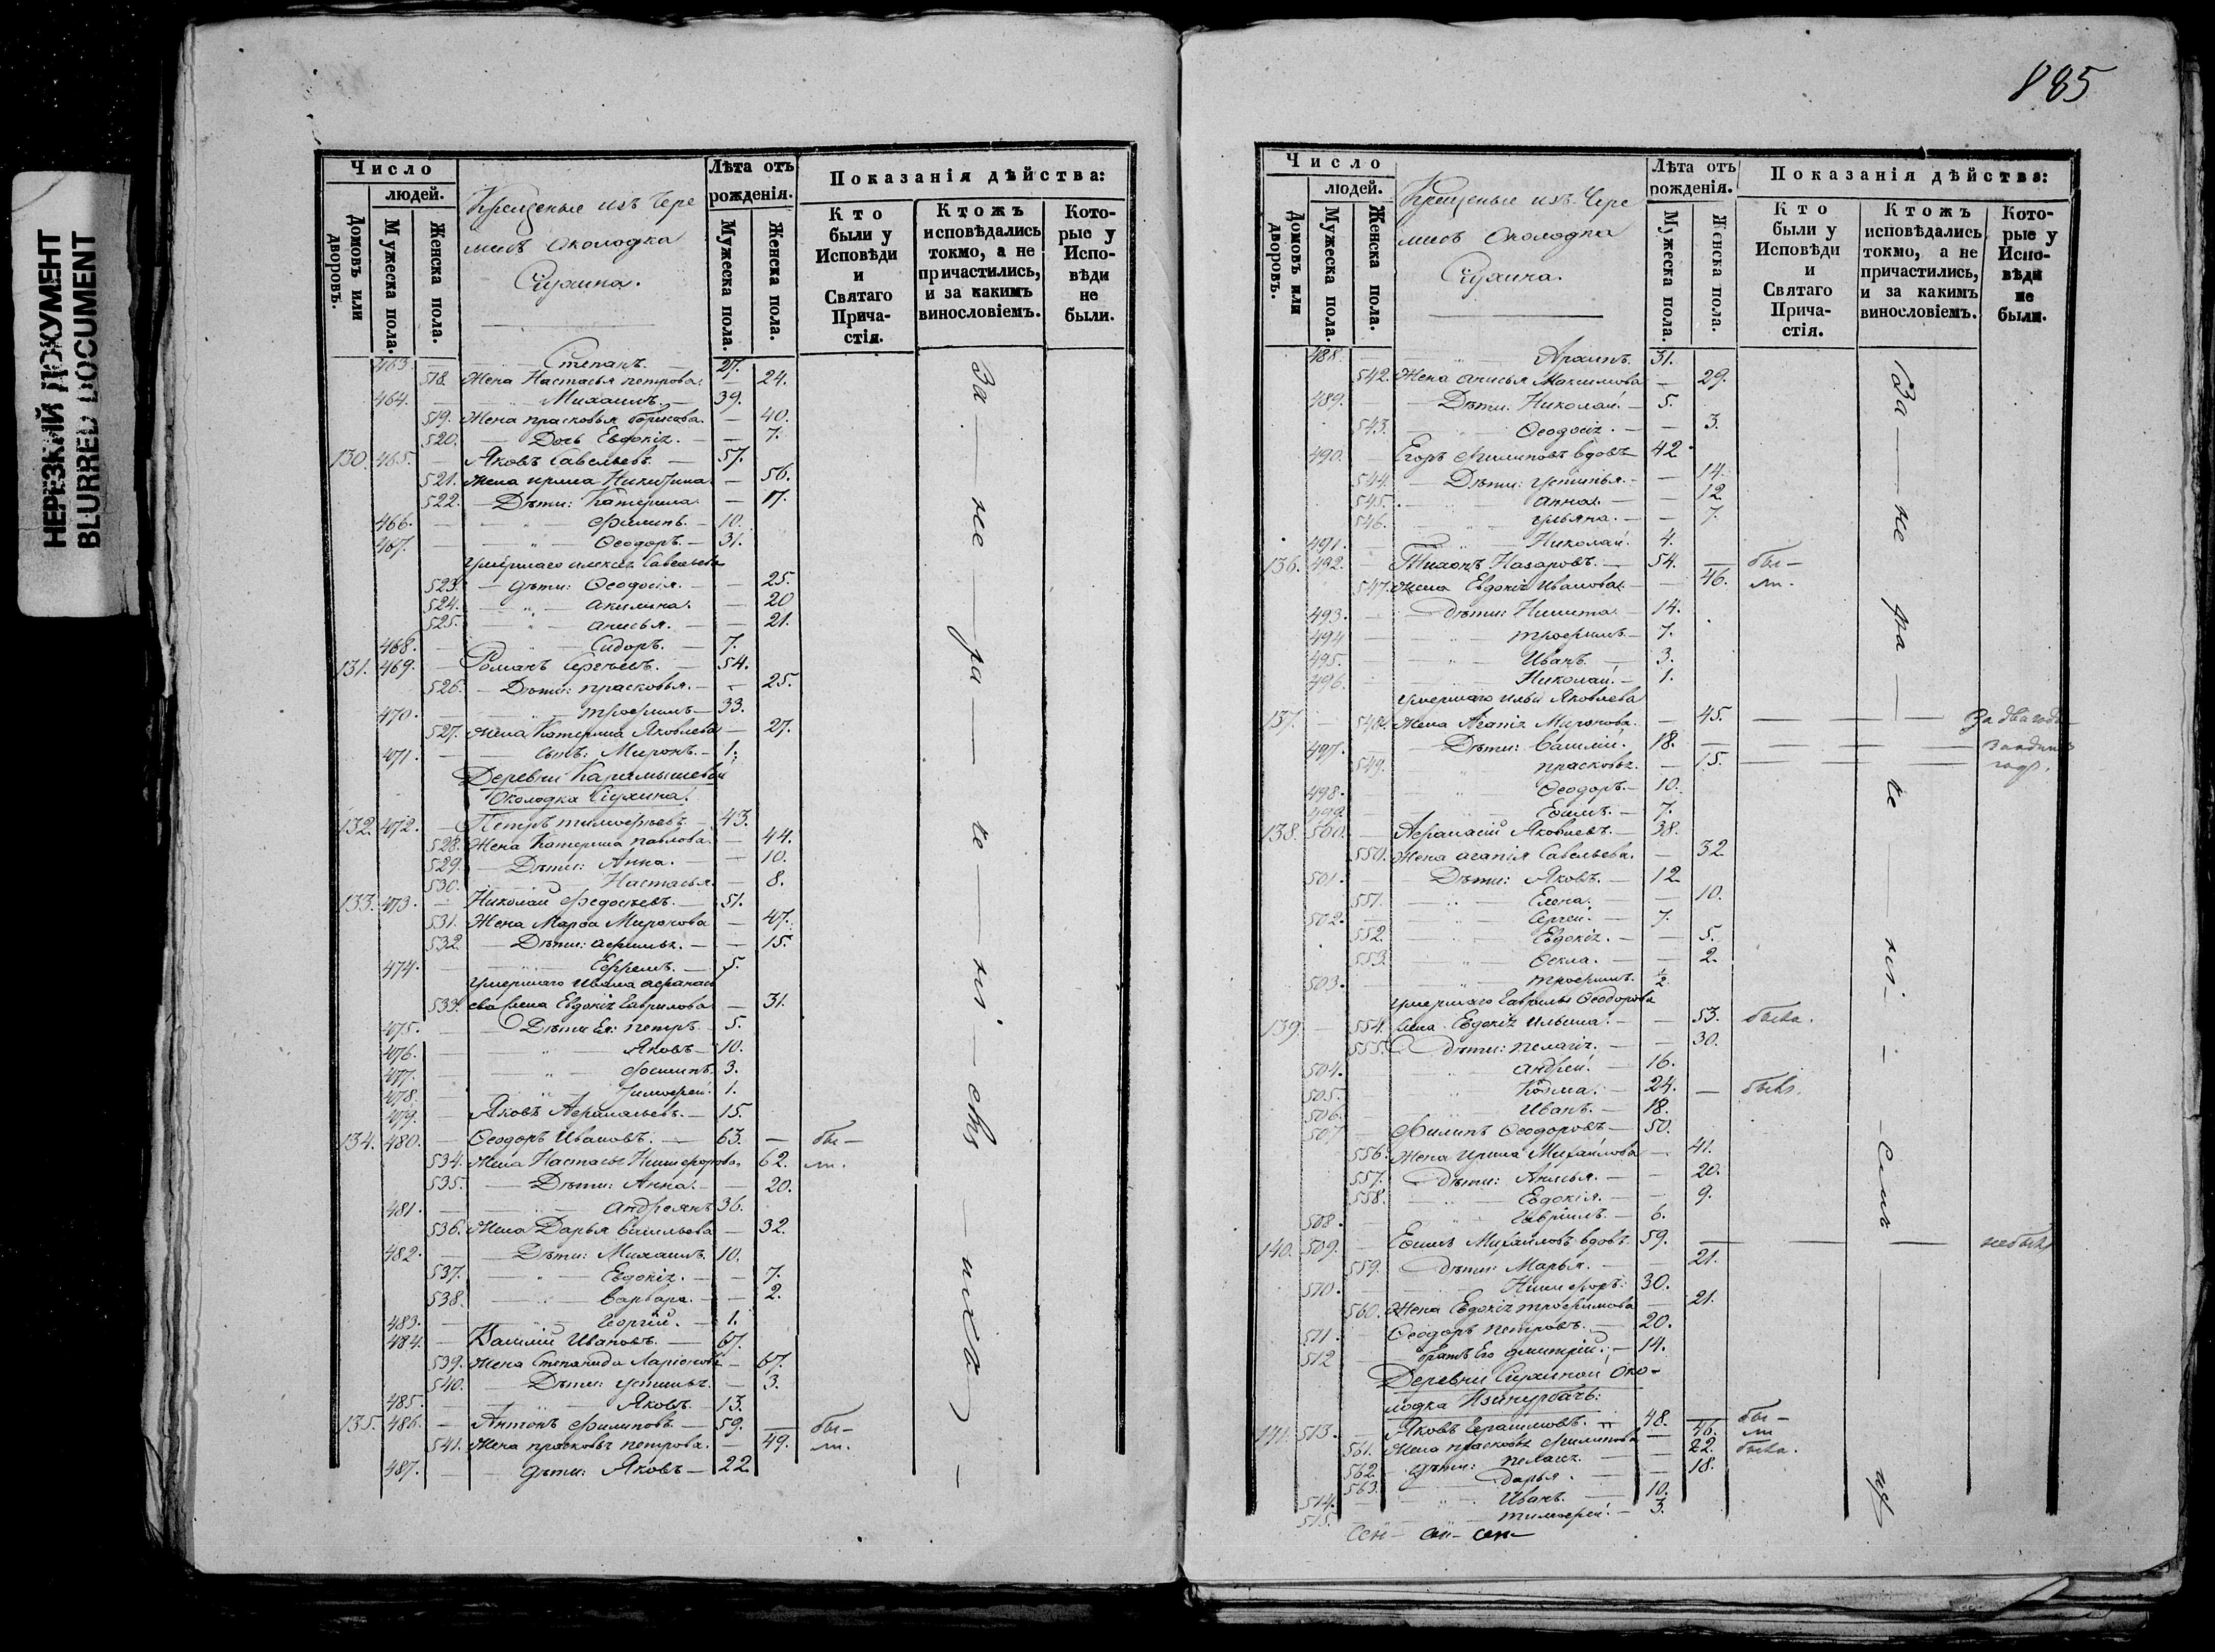 НЕРЕЗКИЙ ДОКУМЕНТ
BLURRED DOCUMENT
Число
людей.
Домовъ или дворовъ.
Мужеска пола.
Женска пола.
Крещеные изъ Чере
мисъ Околодка
Лѣта отъ рожденія.
Мужеска пола.
Женска пола.
Показанія дѣйства:
Кто были у Исповѣди и Святаго Прича-стія.
Ктожъ исповѣдались токмо, а не причастились, и за какимъ винословіемъ.
Кото-рые у Испо-вѣди не были.
463. — Степанъ. — 27.
518. Жена Настасья петрова. — 24.
464. — Михаилъ. — 39.
519. Жена прасковья борисова. — 40.
520. — Дочь Евдокія. — 7.
130. 465. — Яковъ Савельевъ. — 57.
521. Жена ирина Никитина — 56.
522. — Дѣти: Катерина. — 17.
466. — филипъ. — 10.
467. — Ѳеодоръ. — 31.
Умершаго алексѣя Савельева
523. — дѣти: Ѳеодосія. — 25.
524. — акилина. — 20
525. — анисья. — 21.
468. — Сидоръ. — 7.
131. 469. — Романъ Сергѣевъ. — 54.
526. — Дѣти: прасковья. — 25.
470. — трофимъ — 33.
527. Жена Катерина Яковлева — 27.
471. — сынъ: Миронъ. — 1.
Деревни Карамышевой
Околодка
132. 472. — Петръ тимофеевъ — 43.
528. Жена Катерина павлова. — 44.
529. — Дѣти: Анна. — 10.
530. — Настасья. — 8.
133. 473. — Николай Федосѣевъ. — 51.
531. Жена Марѳа Миронова — 47.
532. — Дѣти: — 15.
474. — Ефремъ. — 5.
Умершаго Ивана афанась
533. ева жена Евдокія Гаврилова — 31.
475. — Дѣти Ея: петръ — 5.
476. — Яковъ — 10.
477. — 3.
478. — тимофей. 1.
479. — Яковъ — 15.
134. 480. — Ѳеодоръ Ивановъ. — 63. — бы —
534. Жена Настасья Никифорова. 62. ли.
535. — Дѣти: Анна. — 20.
481. — андреянъ 36.
536. Жена Дарья васильева — 32.
482. — Дѣти: Михаилъ. 10.
537. — Евдокія. — 7.
538. — варвара. — 2.
483. — Георгій. — 1.
484. — Василій Ивановъ. — 67.
539. Жена Степанида Ларіонова — 67.
540. — Дѣти: устинья. — 3.
485. — Яковъ — 13.
135. 486. — Антонъ филиповъ. — 59. — бы —
541. Жена прасковья петрова. — 49. — ли.
487. — дѣти: Яковъ — 22
За — не — ра — че — ні — емъ —
885
Число
людей.
Домовъ или дворовъ.
Мужеска пола.
Женска пола.
Крещеные изъ Чере
мисъ Околодка
Лѣта отъ рожденія.
Мужеска пола.
Женска пола.
Показанія дѣйства:
Кто были у Исповѣди и Святаго Прича-стія.
Ктожъ исповѣдались токмо, а не причастились, и за какимъ винословіемъ.
Кото-рые у Испо-вѣди не были.
488. — Архипъ. 31.
542. Жена анисья Максимова — 29.
489. — Дѣти: Николай. — 5.
543. — Ѳеодосія. — 3.
490. — Егоръ Филиповъ вдовъ — 42.
544. — Дѣти: устинья. — 14.
545. — анна. — 12
546. — ульяна. — 7.
491. — Николай. 4.
136. 492. — Тихонъ Назаровъ. — 54. — бы —
547. Жена Евдокія Иванова. — 46. ли.
493. — дѣти: Никита. — 14.
494 — трофимъ — 7.
495. — Иванъ. — 3.
496. — Николай. — 1.
умершаго ильи Яковлева
137. — 548. Жена Агапія Миронова. — 45. — За два года
497. — Дѣти: василій. 18.
549. — прасковья. — 15. — года.
498. — Ѳеодоръ. — 10.
499. — Ефимъ. — 7.
138. 500. — Афанасій Яковлевъ. — 38.
550. Жена агапія Савельева. — 32
501. — Дѣти: Яковъ. — 12
551. — Елена. — 10.
502. — Сергей. — 7.
552. — Евдокія. — 5.
553. — Ѳекла. — 2.
503. — трофимъ. ½
умершаго Гаврилы Ѳеодорова
139. — 554. жена Евдокія ильина. — 53. была.
555. дѣти: пелагія. — 30.
504. — андрей. — 16.
505. — Козма. — 24. — былъ.
506. — Иванъ. — 18.
507 — Филипъ Ѳеодоровъ — 50.
556. Жена ирина Михаилова — 41.
557. — дѣти: Анисья. — 20.
558. — Евдокія. — 9.
508. — Гаврилъ. — 6.
140. 509. — Ефимъ Михаиловъ вдовъ. 59. — небылъ
559. — дѣти: Марья. — 21.
510. — Никифоръ. 30.
560. Жена Евдокія трофимова — 21.
511. — Ѳеодоръ петровъ. — 20.
512 — братъ Его дмитрій. — 14.
Деревни Око-
лодка
141. 513. — Яковъ Герасимовъ. — 48. — бы —
561. Жена прасковья филипова — 46. ли
562. — дѣти: пелагія. — 22. была.
563. — дарья. — 18.
514. — Иванъ. — 10.
515. — тимофей. — 3.
За — не — ра — че — ні — емъ